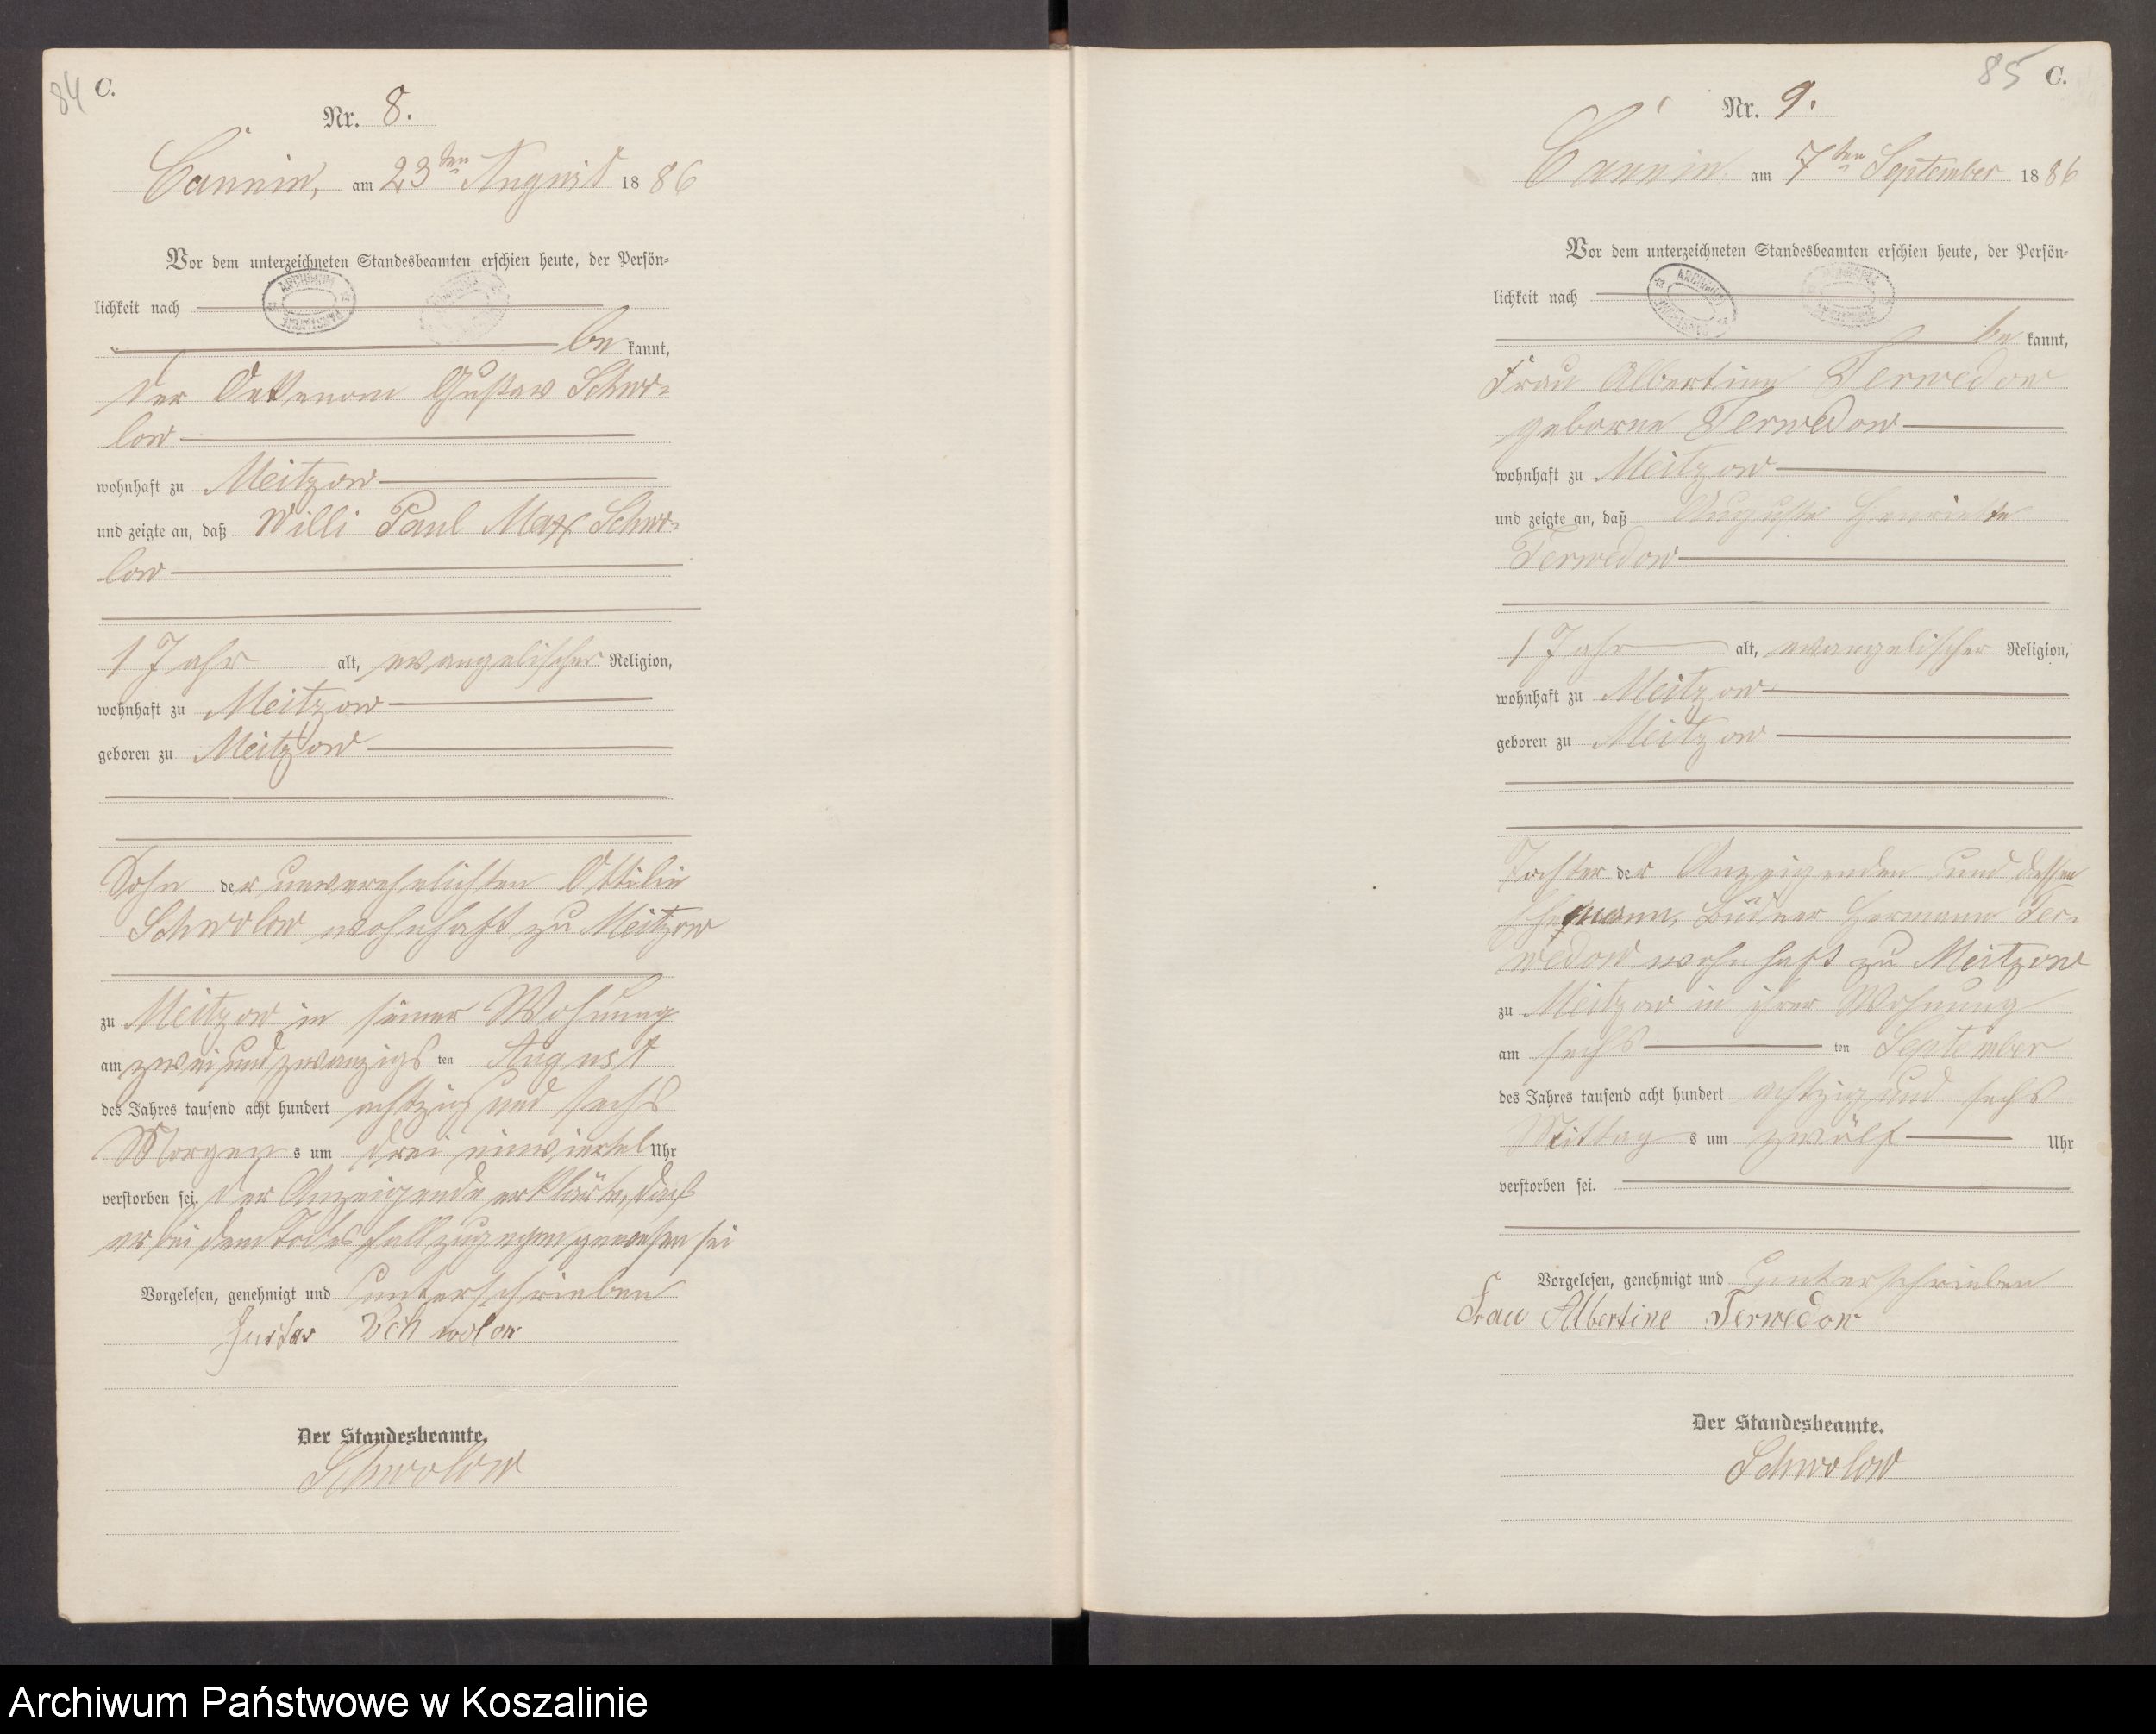 84 C.
Nr. 8.
Cannin, am 23ten August 1886
Vor dem unterzeichneten Standesbeamten erschien heute, der Persön-
lichkeit nach
be kannt,
der Oekonom Gustav Schwo-
low
wohnhaft zu Meitzow
und zeigte an, daß Willi Paul Max Schwo-
low
1 Jahr alt, evangelischer Religion,
wohnhaft zu Meitzow
geboren zu Meitzow
Sohn der unverehelichten Ottilie
Schwolow wohnhaft zu Meitzow
zu Meitzow in seiner Wohnung
am zwei und zwanzigs ten August
des Jahres tausend acht hundert achtzig und sechs
Morgen s um drei einviertel Uhr
verstorben sei. der Anzeigende erklärte, daß
er bei dem Todesfall zugegen gewesen sei
Vorgelesen, genehmigt und unterschrieben
Gustav Schwolow
Der Standesbeamte.
Schwolow
85 C.
Nr. 9.
Cannin am 7ten September 1886
Vor dem unterzeichneten Standesbeamten erschien heute, der Persön-
lichkeit nach
be kannt,
Frau Albertine Terwedow
geborne Terwedow
wohnhaft zu Meitzow
und zeigte an, daß Auguste Henriette
Terwedow
1 Jahr alt, evangelischer Religion,
wohnhaft zu Meitzow
geboren zu Meitzow
Tochter der Anzeigenden und dessen
Ehemann, Büdner Hermann Ter-
wedow wohnhaft zu Meitzow
zu Meitzow in ihrer Wohnung
am sechs ten September
des Jahres tausend acht hundert achtzig und sechs
Mittag s um zwölf Uhr
verstorben sei.
Vorgelesen, genehmigt und unterschrieben
Frau Albertine Terwedow
Der Standesbeamte.
Schwolow
Archiwum Państwowe w Koszalinie